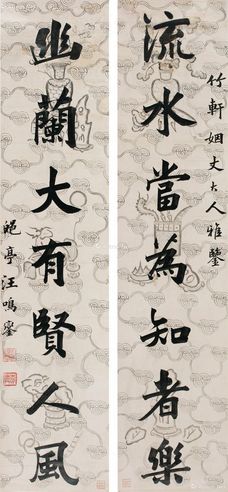 竹軒姻丈大人雅鑒
流水當為知者樂
幽蘭大有賢人風
郋亭汪鳴鑾